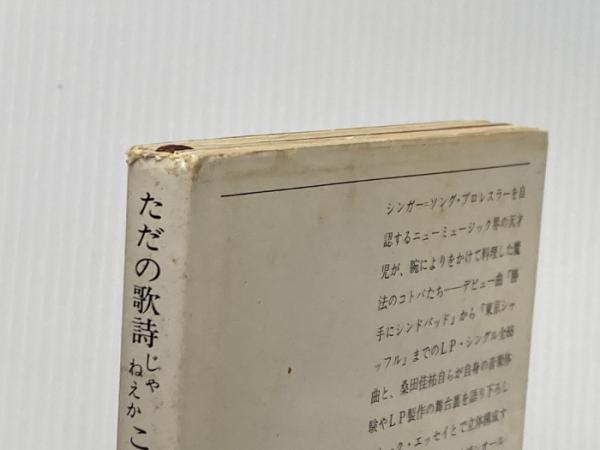 ただの歌詩じゃ
ねえかこ
シンガー=ソング・プロレスラーを自
認するニューミュージック界の天才
児が、腕によりをかけて料理した魔
法のコトバたち──デビュー曲「勝
手にシンドバッド」から「東京シャ
ッフル」までのLP・シングル全
曲と、桑田佳祐自らが自身の音楽体
験やLP製作の舞台裏を語り下ろし
ック・エッセイとで立体構成す
オール